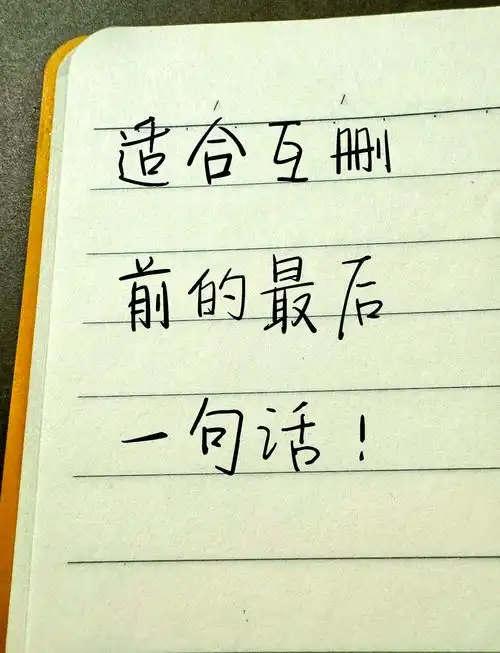 适合互删
前的最后
一句话！